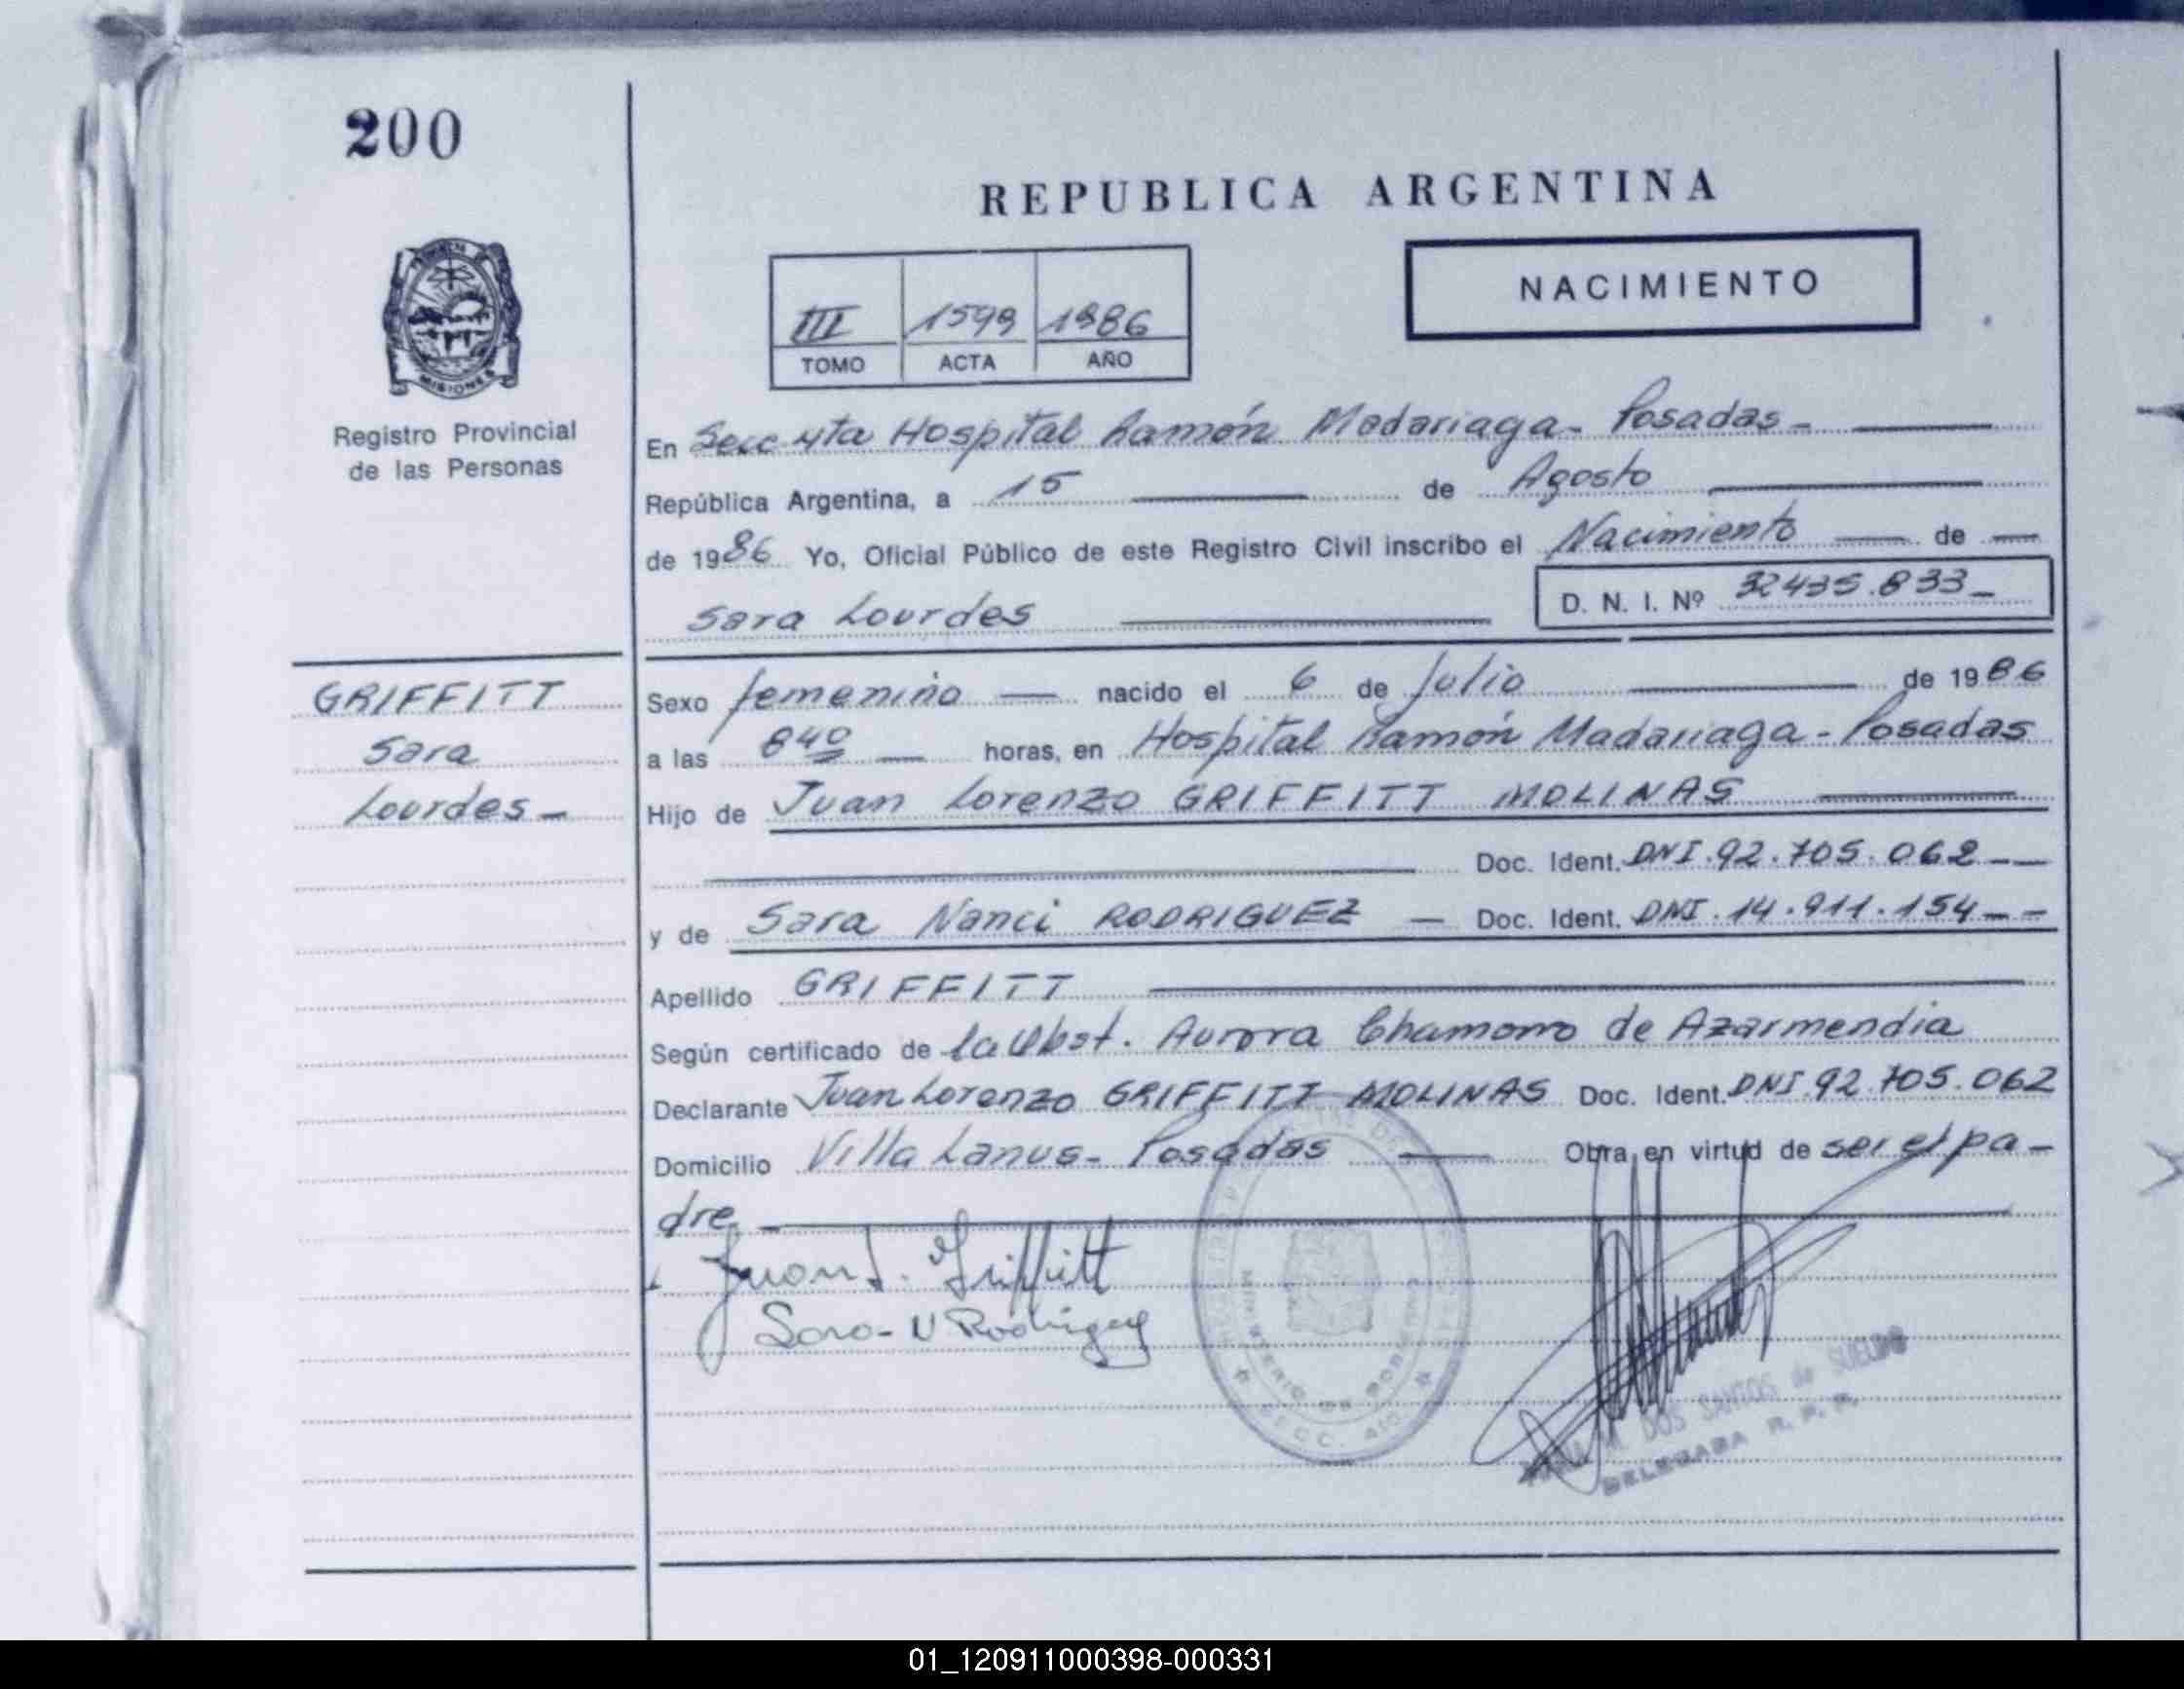 200
REPUBLICA ARGENTINA
NACIMIENTO
III 1599 1986
TOMO ACTA AÑO
MISIONES
Registro Provincial
de las Personas
En Secc 4ta Hospital Ramón Madariaga - Posadas -
República Argentina, a 15 de Agosto
de 1986 Yo, Oficial Público de este Registro Civil inscribo el Nacimiento de
Sara Lourdes D. N. I. Nº 32435.833
GRIFFITT
Sara
Lourdes -
Sexo femenino nacido el 6 de Julio de 1986
a las 840 horas, en Hospital Ramón Madariaga - Posadas
Hijo de Juan Lorenzo GRIFFITT MOLINAS
Doc. Ident. DNI. 92.705.062
y de Sara Nanci RODRIGUEZ Doc. Ident. DNI. 14.911.154
Apellido GRIFFITT
Según certificado de la Obst. Aurora Chamorro de Azarmendia
Declarante Juan Lorenzo GRIFFITT MOLINAS Doc. Ident. DNI. 92.705.062
Domicilio Villa Lanus - Posadas Obra en virtud de ser el pa-
dre
Juan L. Griffitt
Sara - N Rodriguez
MINISTERIO DE GOBIERNO
SECC. 4ta
M. DOS SANTOS de SUELDO
DELEGADA R. P. P.
01_120911000398-000331